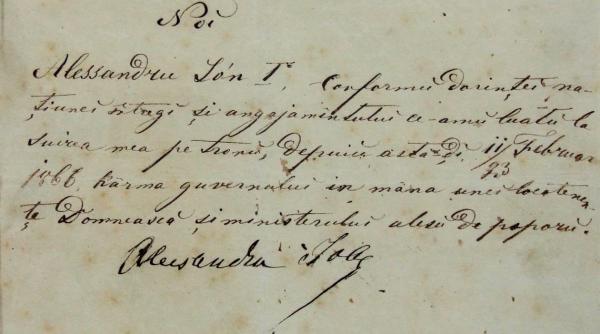 Noi
Alessandru Ión I, Conformŭ dorinței na-
țiunei întregi și angajamîntului ce-amŭ luatŭ la
suirea mea pe tronŭ, depuiŭ astăḑi 11/23 Februar
1866 kârma guvernului in mâna unei locotenen-
țe Domnească și ministerului alesŭ de poporŭ.
Alessandru Ioan